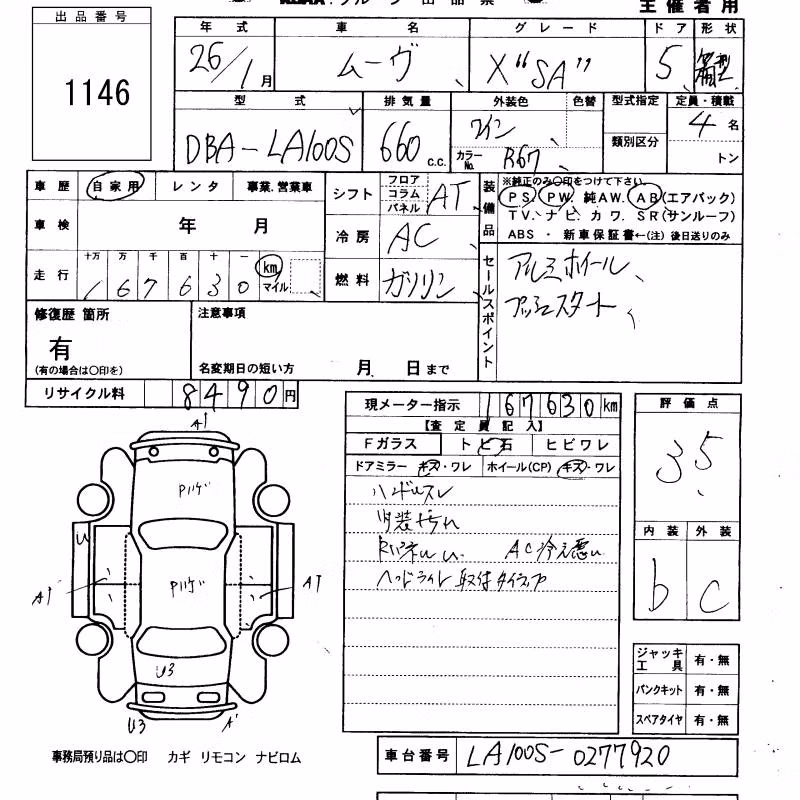 グループ 出品票
主催者用
出品番号
1146
年式 車名 グレード ドア 形状
26/1月 ムーヴ X "SA" 5 箱型
型式 排気量 外装色 色替 型式指定 定員・積載
DBA-LA100S 660 c.c. ワイン 類別区分 4名
カラーNo. R67 トン
車歴 自家用 レンタ 事業.営業車
車検 年 月
走行 十万 万 千 百 十 一 km マイル
167630
シフト フロア コラム パネル AT
冷房 AC
燃料 ガソリン
装備品
※純正のみ○印をつけて下さい。
PS. PW. 純AW. AB(エアバック)
TV. ナビ. カワ. SR(サンルーフ)
ABS ・ 新車保証書←(注) 後日送りのみ
セールスポイント
アルミホイール、
プッシュスタート
修復歴 箇所
有
(有の場合は○印を)
注意事項
名変期日の短い方 月 日まで
リサイクル料 8490円
現メーター指示 167630km
【査定員記入】
Fガラス トビ石 ヒビワレ
ドアミラー キズ・ワレ ホイール(CP) キズ・ワレ
ハンドルスレ
内装汚れ
AC冷え悪い
ヘッドライト取付タイプ
評価点
3.5
内装 外装
b C
ジャッキ工具 有・無
パンクキット 有・無
スペアタイヤ 有・無
A1
Pハゲ
U
A1
Pハゲ
A1
U3
U3
A1
事務局預り品は○印 カギ リモコン ナビロム
車台番号 LA100S-0277920